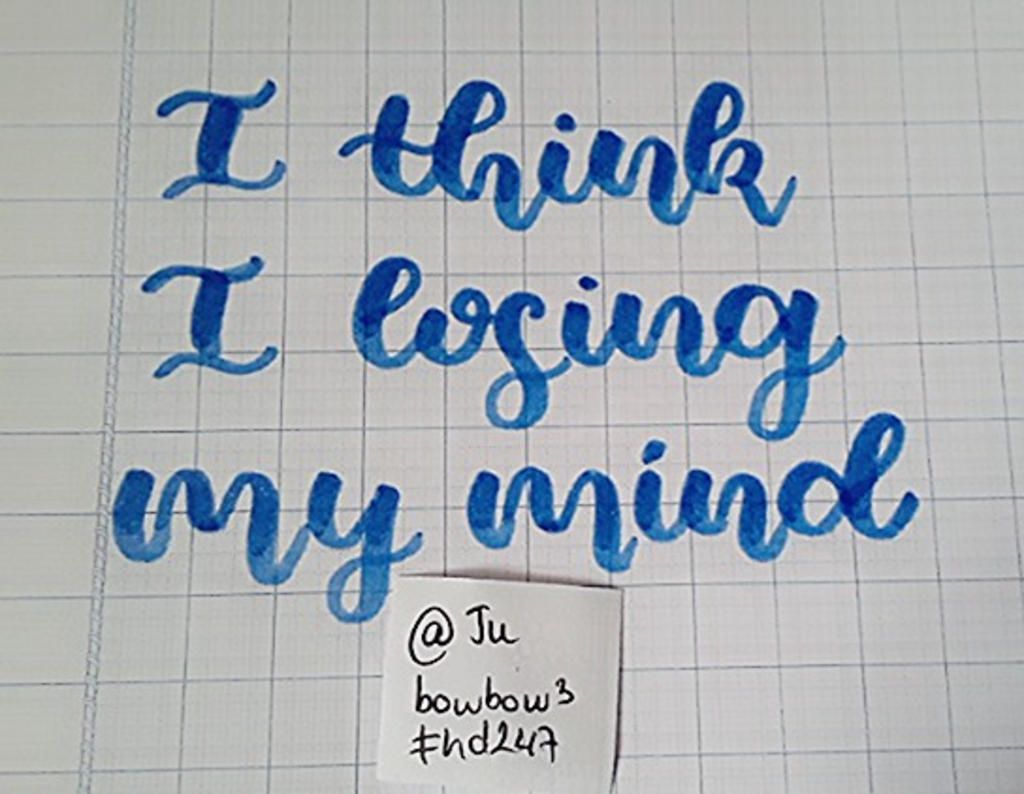 I think
I losing
my mind
@Ju
bowbow3
#hd247